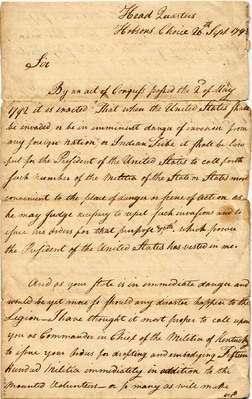 Head Quarters
Hobsons Choice 26th Sept 1793
Sir
By an act of Congress passed the 2d of May
1792 it is enacted "That when the United States shall
be invaded or be in imminent danger of invasion from
any foreign nation or Indian Tribe it shall be law
ful for the President of the United States to call forth
such number of the Militia of the State or States most
convenient to the place of danger or scene of action as
he may judge necessary to repel such invasions and to
issue his orders for that purpose &ca, which power
the President of the United States has vested in me.
And as your State is in immediate danger and
would be yet more so should any disaster happen to the
Legion—I have thought it most proper to call upon
you as Commander in Chief of the Militia of Kentucky
to issue your Orders for drafting and embodying Fifteen
Hundred Militia immediately in addition to the
Mounted Volunteers—or so many as will make
up